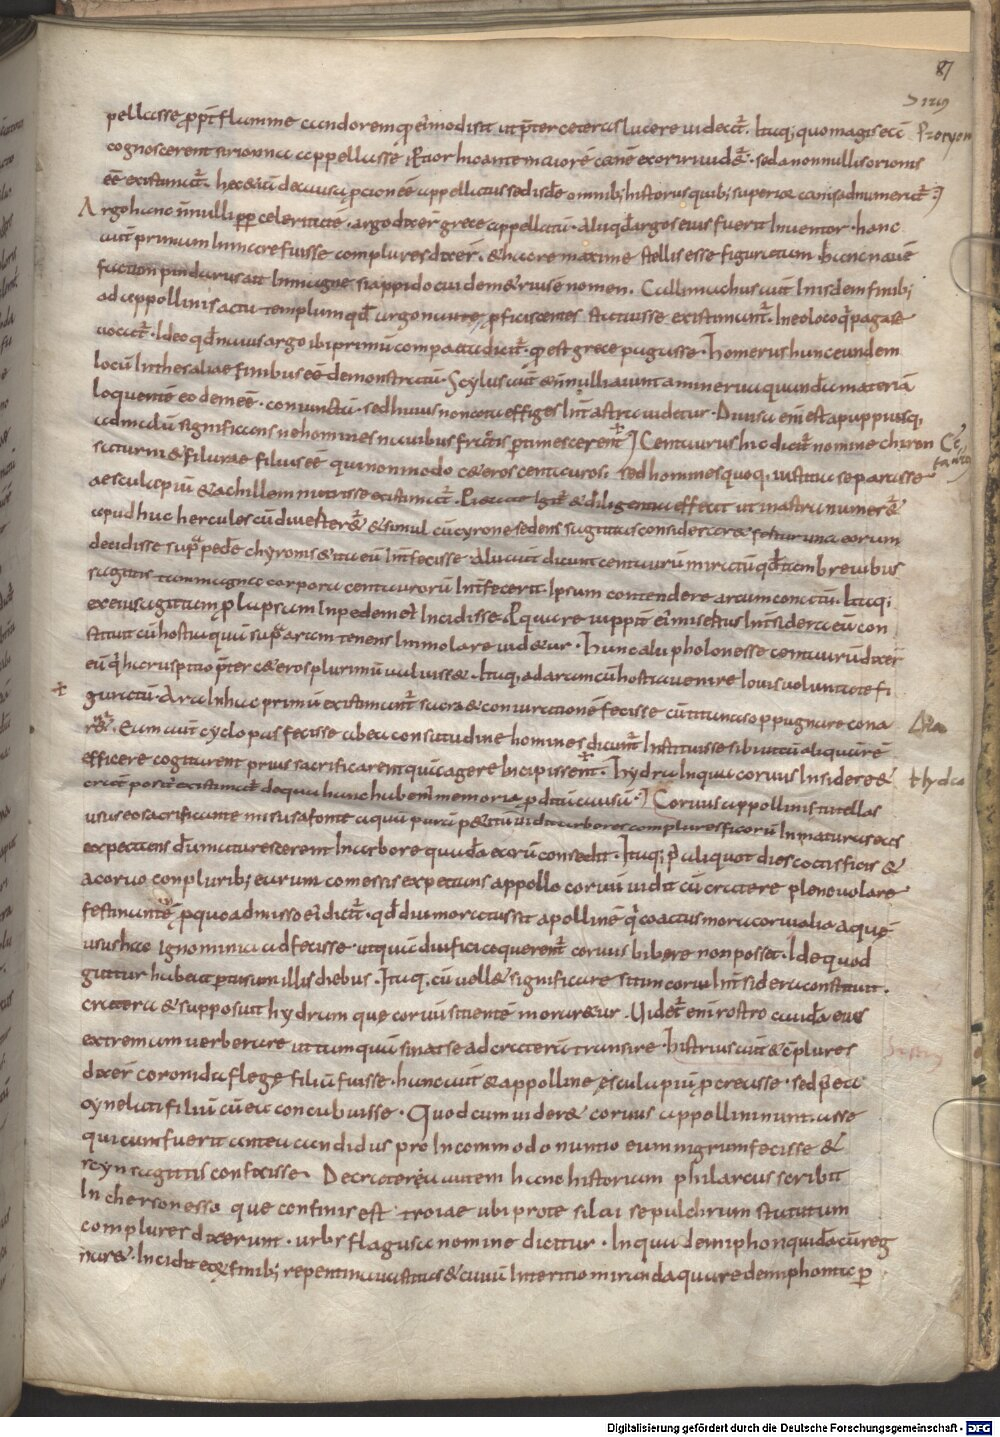 87
Sirius
pellasse ꝓpt flamme candorem ꝙ ei᷒modi sit ut p̄ter ceteras lucere uideat᷒. Itaq; quo magis eā Procyon
cognoscerent sirion ca appellasse hic ante maiorē canē exoriri uidet᷒. sed a nonnullis orionis
eē existimat᷒. hec &iā de causa ꝓcion eē appellatus sed isdē omnib; historiis quib; superior canis adnumerat᷒.
Argo hanc n̄nulli ꝓp celeritatē. argo dixer̄ grece appellatā. alii qđ argos eius fuerit Inuentor. hanc
aut primum In mare fuisse complures dixer̄. & hac re maxime stellis esse figuratam. hanc nauē
factam pindarus ait In magne siappido cui dem&riusē nomen. Callimachus aut Inisdem finib;
ad appollinis actii templum qđ argonaute ꝓficiscentes statuisse existimant᷒. In eo loco q̄ pagase
uocat᷒. Ideo qđ nauis argo ibi primū compacta dicit᷒. qđ est grece pagasse. homerus hunc eundem
locū In thesaliae finibus eē demonstrat. Scylus aut & n̄nulli aiunt a minerua quandā materiā
loquentē eodem eē. coniunctā. sed huius non tota effiges Int̄ astra uidetur. Diuisa enī est a puppi usq;
ad malū significans ne homines nauibus fractis ptimescerent Centaurus hic dicit᷒ nomine chiron Cētaurus
saturni & filurae filius eē qui non modo c&eros centauros. sed homines quoq; iustitia separasse
aesculapiū & achillem nutrisse existimat᷒. Pietate igit᷒ & diligentia effecit ut In astra numer&᷒
apud hunc hercules cū diuerter&᷒ & simul cū cyrone sedens sagittas considerar& fertur una earum
decidisse supra pedē chyronis & ita eū Int̄fecisse. alii aut dicunt centaurū miratū qđ tam breuibus
sagittis tam magna corpora centaurorū Int̄fecerit. Ipsum contendere arcum conatū. Itaq;
ex eius sagittam ꝓlapsam In pedem ei᷒ Incidisse. Quare iuppit̄ ei᷒ misertus Int̄ sidera eū con
stituit cū hostia quā supra aram tenens Immolare uid&ur. hunc alii pholon esse centaurū dixer̄
eū q̄ haruspitio p̄ter c&eros plurimū ualuiss&. Itaq; ad aram cū hostia uenire Iouis uoluntate fi
guratū. Ara In hac primū existimant᷒ sacra & coniurationē fecisse cū titanas oppugnare cona Ara
r&᷒. Eam aut cyclopas fecisse ab ea consuetudine homines dicunt᷒ Instituisse sibi ut cū aliquā rē
efficere cogitarent prius sacrificarent quā agere Incipissent. hydra In qua coruus Insidere & Hydra
crat posit᷒ existimat᷒ de qua hanc habem᷒ memoriae ꝓditā causā. Coruus appollinis tutellas
usus eo sacrificante misus a fonte aquā purā petitū uidit arbores complures ficorū Inmaturas eas
expectans dū maturescerent In arbore quadā earū consedit. Itaq; p᷒ aliquot dies coctis ficis &
a coruo conpluribꝰ earum comessis expectans appollo coruū uidit cū cratere pleno uolare
festinantē ꝓ quo admisso ei᷒ dicit᷒. qđ diu moratus sit apollinē q̄ coactus mora corui alia aqua
usus hac Ignominia adfecisse. ut quā diu fici coquerent᷒ coruus bibere non posset. Ideo quod
guttur habeat ptusum illis diebus. Itaq; cū uell& significare sitim corui Int̄ sidera constituit.
cratera & supposuit hydram que coruū sitientē morar&ur. Uidet᷒ enī rostro caudā eius
extremam uerberare ut tamquā sinat se ad craterā transire. histrius aut & cōplures
dixer̄ coronida flege filiā fuisse. hanc aut & appolline ęsculapiū ꝓcreasse. sed p᷒ ea
gyn elati filiū cū ea concubuisse. Quod cum uider& coruus appollini nuntiasse
qui cum fuerit antea candidus pro Incommodo nuntio eum nigrum fecisse &
scyn sagittis confixisse. De cratera autem hanc historiam philarcus scribit
In chersonesso que confinis est troiae ubi prote silai sepulchrum statutum
complures dixerunt. urbs flagusa nomine dicitur. In qua demiphon quidā cū reg
nar&. Incidit eoꝝ finib; repentina uastitas & ciuiū Interitio miranda quare demiphontic ꝑ
Digitalisierung gefördert durch die Deutsche Forschungsgemeinschaft - DFG